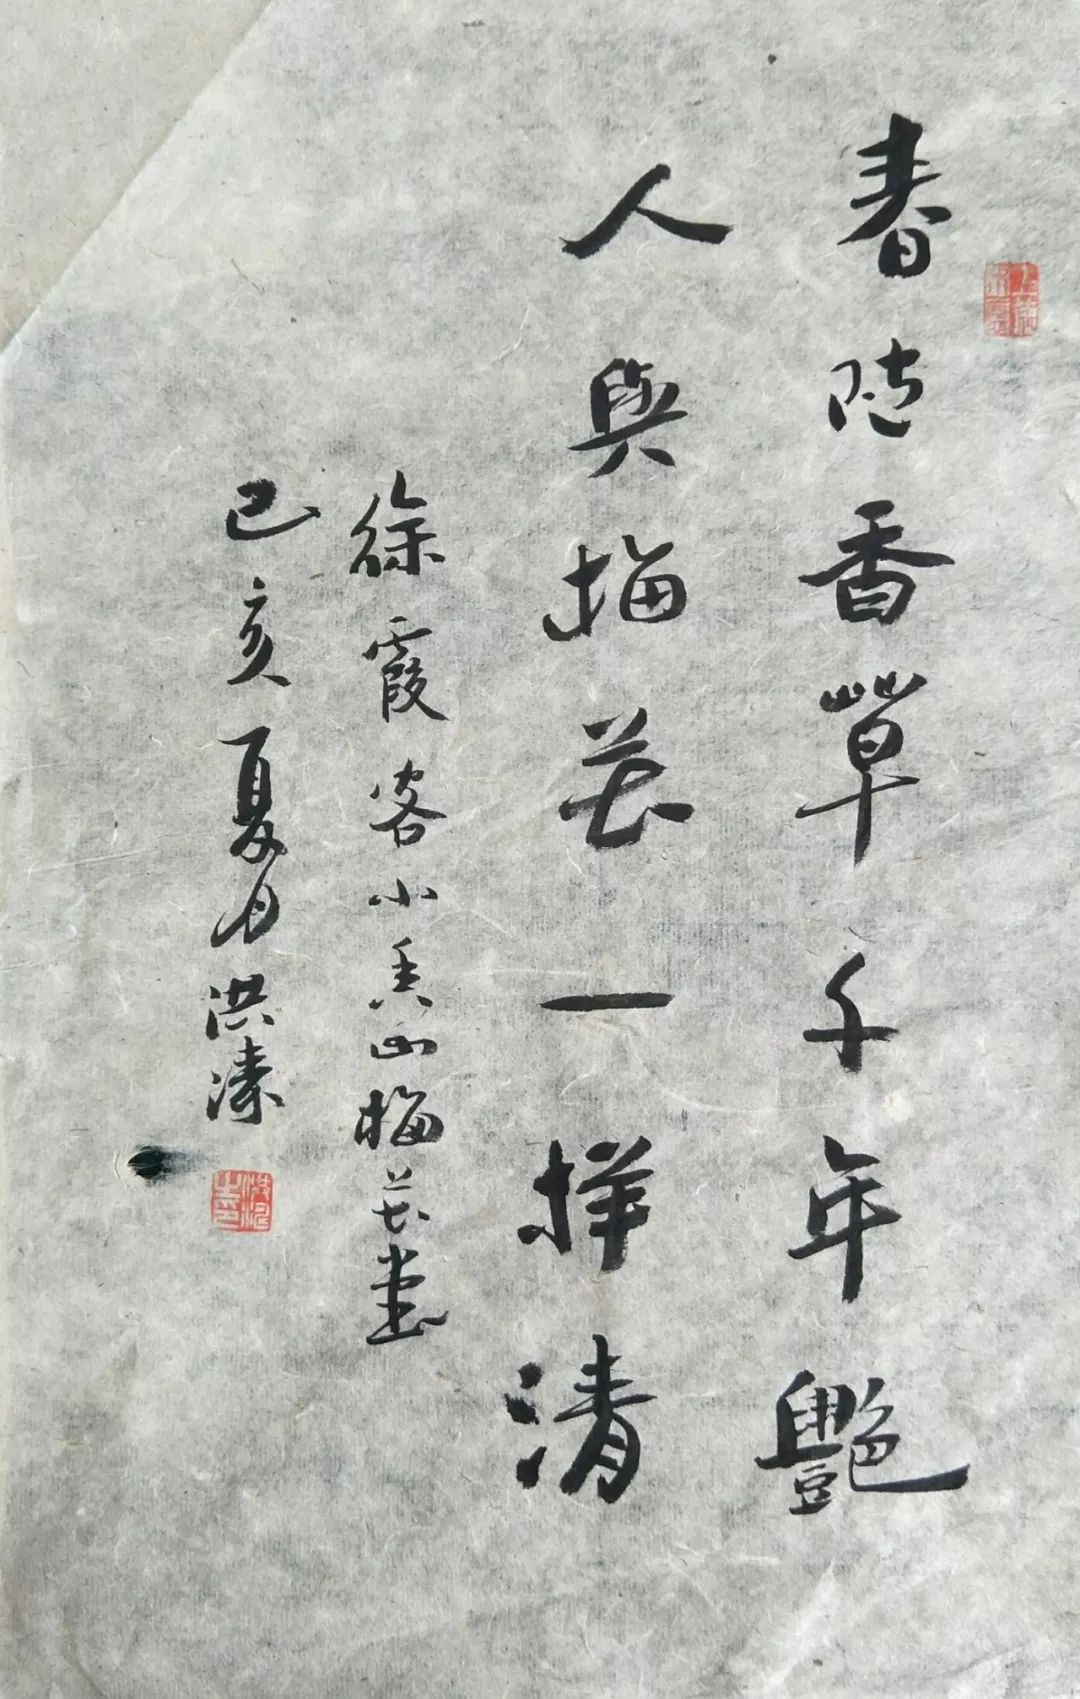 春随香草千年艷
人與梅花一样清
徐霞客小香山梅花堂
己亥夏月洪溱